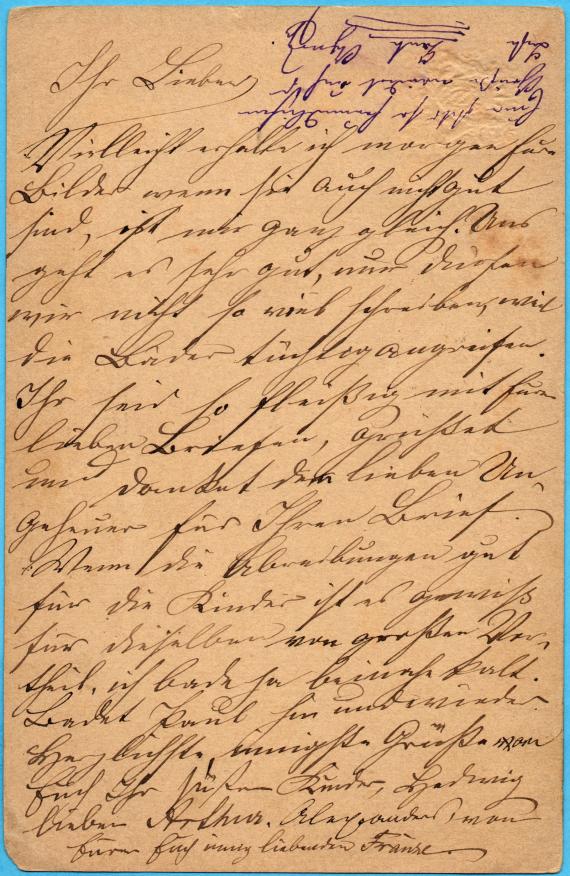 Ihr Lieben
Vielleicht erhalte ich morgen Eure
Bilder wenn sie auch nicht gut
sind, ist mir ganz gleich. Uns
geht es sehr gut, nur dürfen
wir nicht so viel schreiben, weil
die Bäder tüchtog angreifen.
Ihr seid so fleißig mit Euren
lieben Briefen, Grüßet
und danket den lieben Un¬
geheuer für Ihren Brief
Wenn die Abreibungen gut
für die Kinder ist es gewiß
für dieselben von großen Vor¬
theil, ich bade ja beinahe kalt.
Badet Paul hin und wieder
Herzlichste, innigste Grüße von
Euch Ihr süßen Kinder, Hedwig
lieben Arthur, Alexanders, von
Eurer Euch innig liebenden Franze.